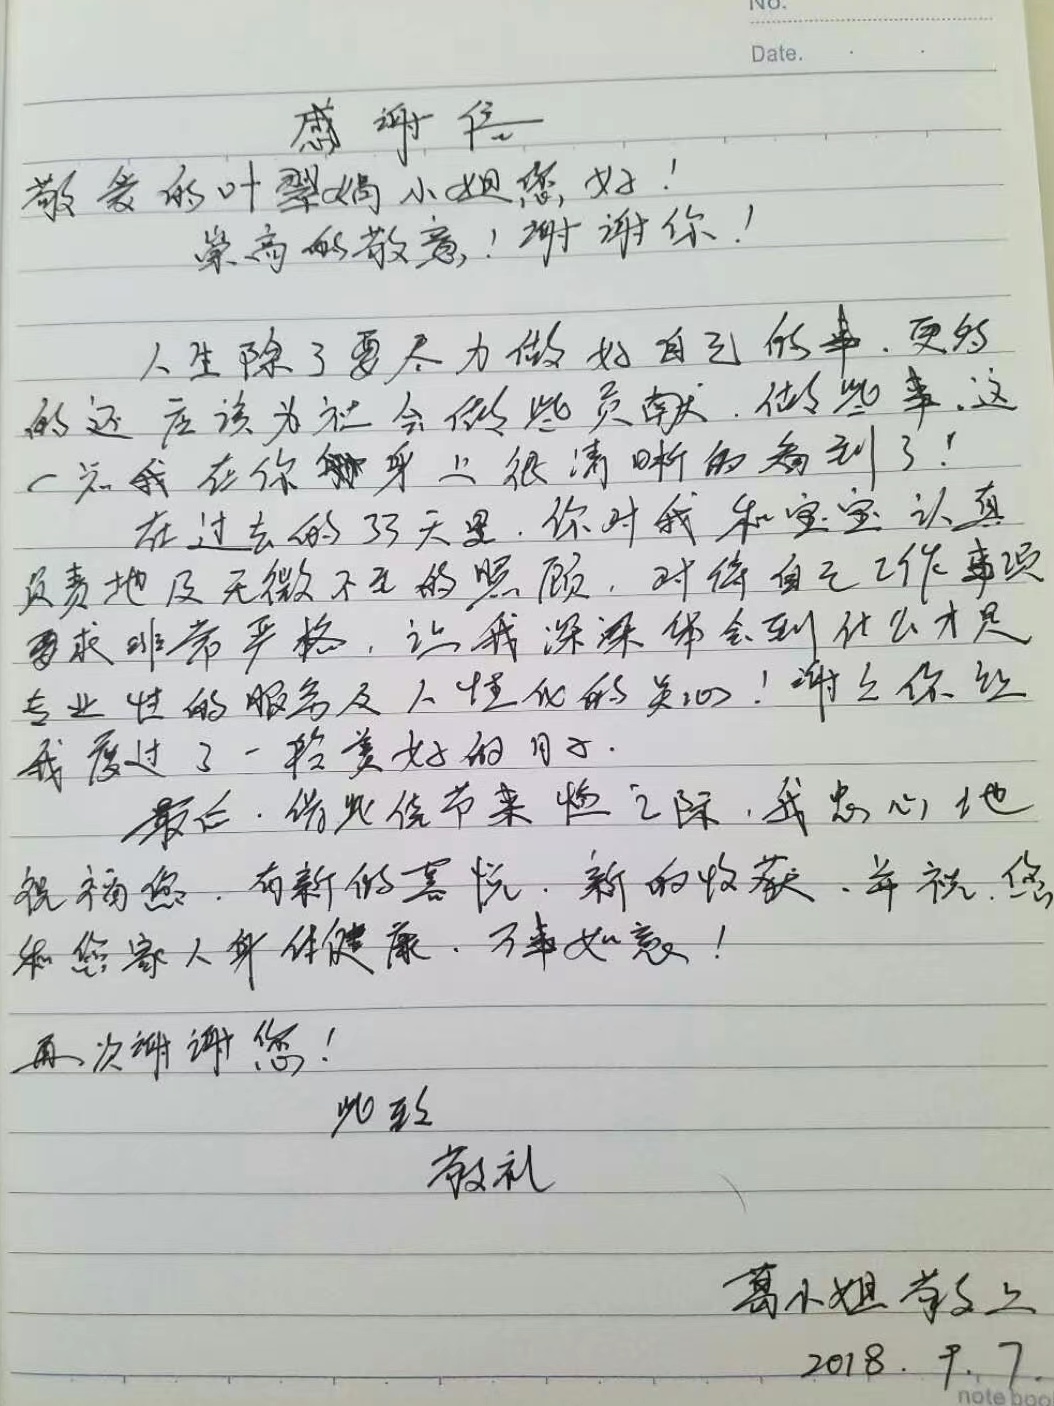 No.
Date.
感谢信
敬爱的叶翠娟小姐您好！
崇高的敬意！谢谢你！
人生除了要尽力做好自己的事、更多
的还应该为社会做些贡献、做些事、这
一点我在你身上很清晰的看到了！
在过去的33天里、你对我和宝宝认真
负责地及无微不至的照顾、对待自己工作事项
要求非常严格、让我深深体会到什么才是
专业性的服务及人性化的关心！谢谢你让
我度过了一个美好的月子.
最后.借此佳节来临之际、我忠心地
祝福您、有新的喜悦、新的收获、并祝、您
和您家人身体健康、万事如意！
再次谢谢您！
此致
敬礼
葛小姐敬上
2018.9.7.
notebook